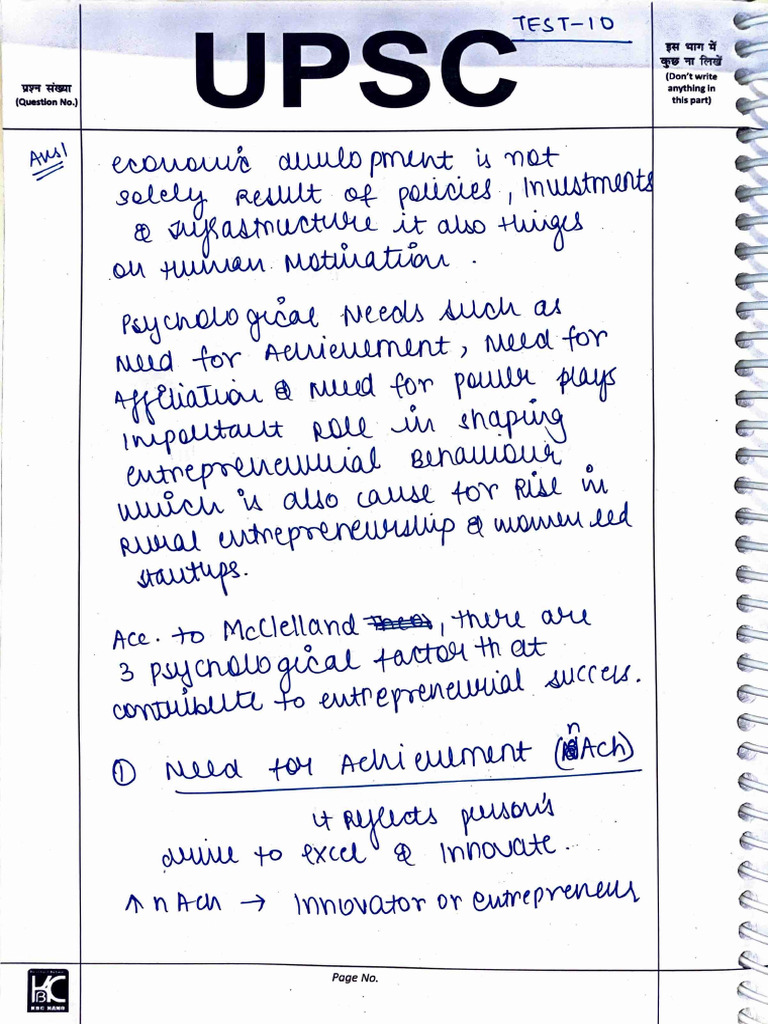 TEST-10
प्रश्न संख्या
(Question No.)
UPSC
इस भाग में
कुछ ना लिखें
(Don't write
anything in
this part)
Ans1
economic development is not
solely result of policies, Investments
& Infrastructure it also hinges
on Human Motivation.
Psychological Needs such as
Need for Achievement, Need for
Affiliation & Need for power plays
important role in shaping
entrepreneurial Behaviour
which is also cause for Rise in
Rural entrepreneurship & women led
startups.
Acc. to McClelland, there are
3 psychological factor that
contribute to entrepreneurial success.
① Need for Achievement (nAch)
it Reflects person's
drive to excel & Innovate.
↑ nAch → Innovator or entrepreneur
Page No.
KBC NANO